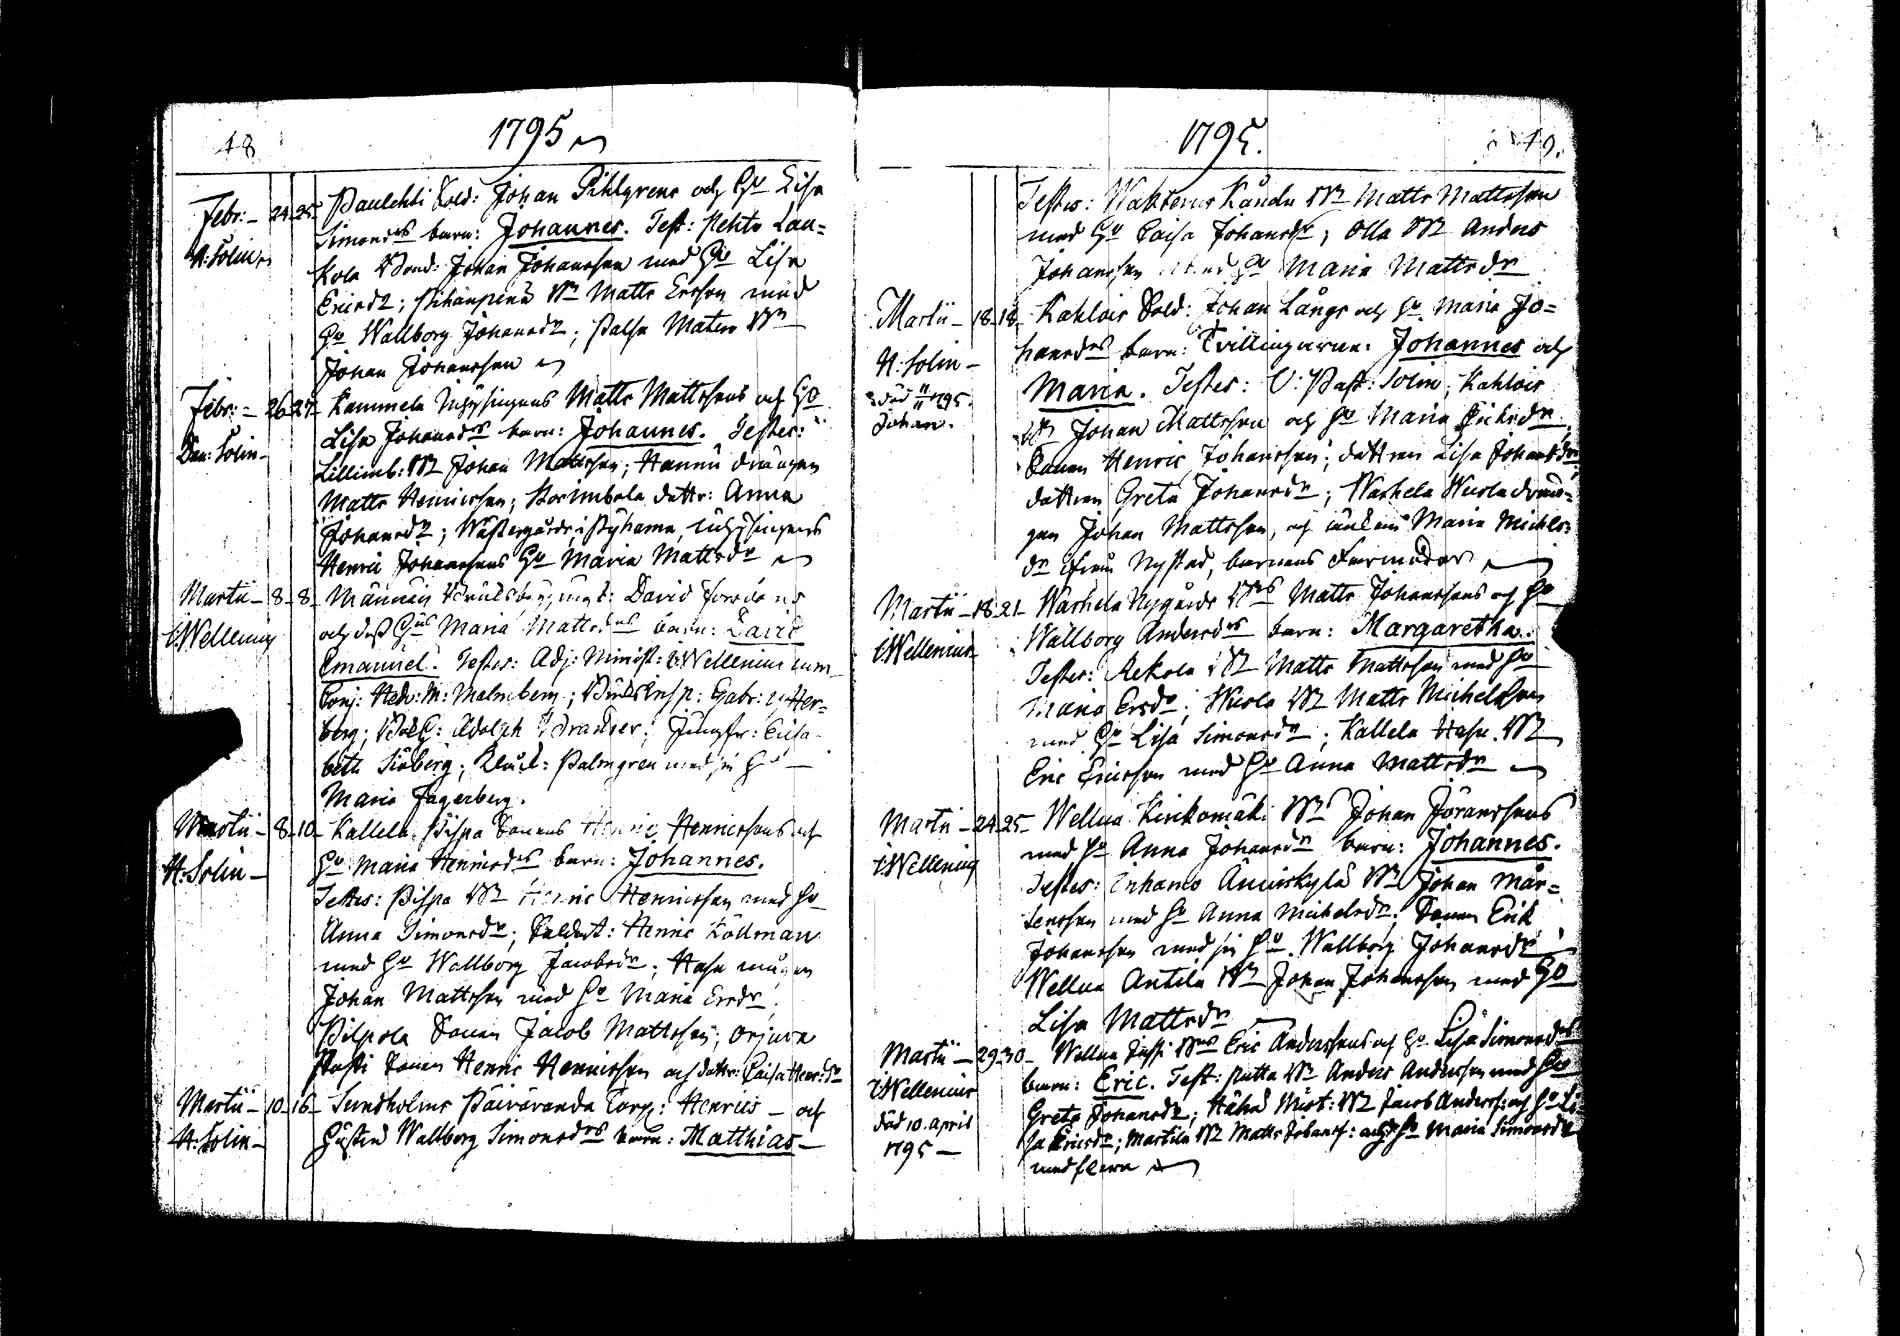 48
1795
Febr: – 24 25 Paulchti Sold: Johan Pihlgrens och Hu Lisa
Simonsdrs barn: Johannes. Test: Rehto Lau=
H: Solin
kola Bond: Johan Johansson med Hu Lisa
Ericsdr; Mr Matts Ersson med
Hu Wallborg Johansdr; Palsa Maten Mr
Johan Johansson
Febr: – 26 27 Kammela Inhysingens Matts Mattssons och Hu
Lisa Johansdrs barn: Johannes. Testes:
Dan: Solin –
Lillimb: Mr Johan Mattsson; Hannu drängen
Matts Henricsson; dottr: Anna
Johansdr; Wästergårds i Pyhama, Inhysingens
Henric Johanssons Hu Maria Mattsdr
Martii – 8 – 8 – Männäis David
och dess Hus Maria Mattsdrs barn: David
C: Wellenius
Emanuel. Testes: Adj: Minist: C: Wellenius cum
Conj: Hedv: M: Malmberg; Insp: Gabr:
berg; Adolph Brander; Jungfr: Elisa=
beth Siöberg; Palmgren med sin Hu –
Maria Fagerberg.
Martii – 8 – 10 – Kallela Pispa Sonens Henric Henricssons och
Hu Maria Henricsdrs barn: Johannes.
H: Solin –
Testes: Pispa Mr Henric Henricsson med Hu
Anna Simonsdr; Soldat: Henric Källman
med Hu Wallborg Jacobsdr; Hasu mågen
Johan Mattsson med Hu Maria Ersdr;
Pilpola Sonen Jacob Mattsson; Orjura
Pasti Sonen Henric Henricsson och dottr: Caisa Henr:dr
Martii – 10 – 16 – Sundholms Päiväranda Torp: Henrics – och
H: Solin –
Hustrus Wallborg Simonsdrs barn: Matthias –
1795.
49.
Testes: Wakkerus Kåndu Mr Matts Mattsson
med Hu Caisa Johansdr; Olla Mr Anders
Johansson med Hu Maria Mattsdr
Martii – 18 – 18 – Kahlois Sold: Johan Långs och Hu Maria Jo=
hansdrs barn: Tvillingarne: Johannes och
H: Solin –
död 1795.
Johan.
Maria. Testes: V: Past: Solin; Kahlois
Mr Johan Mattsson och Hu Maria Michsdr
Sonen Henric Johansson; dottren Lisa Johansdr
dottren Greta Johansdr; Warhela Wusla drän=
gen Johan Mattsson, och änkan Maria Michls:
dr ifrån Nystad, barnens Farmoder
Martii – 18 21 – Warhela Nygårds Mrs Matts Johanssons och Hu
Wallborg Andersdrs barn: Margaretha.
C: Wellenius
Testes: Aekola Mr Matts Mattsson med Hu
Maria Ersdr; Wusla Mr Matts Michelsson
med Hu Lisa Simonsdr; Kallela Hasu Mr
Eric Ericsson med Hu Anna Mattsdr
Martii – 24 – 25 – Wellua Kirkomäki Mrs Johan Jöranssons
med Hu Anna Johansdr barn: Johannes.
C: Wellenius
Testes: Mr Johan Mår=
tensson med Hu Anna Michelsdr; Sonen Erik
Johansson med sin Hu Wallborg Johansdr
Wellua Antila Mr Johan Johansson med Hu
Lisa Mattsdr
Martii – 29 – 30 – Wellua Jussi Mrs Eric Anderssons och Hu Lisa Simonsdrs
barn: Eric. Test: Rutta Mr Anders Andersson med Hu
C: Wellenius
död 10. april
1795 –
Greta Johansdr; Hähä Mist: Mr Jacob Anderss: och Hu Li=
sa Ericsdr; Martila Mr Matts Johanss: och Hu Maria Simonsdr
med flera